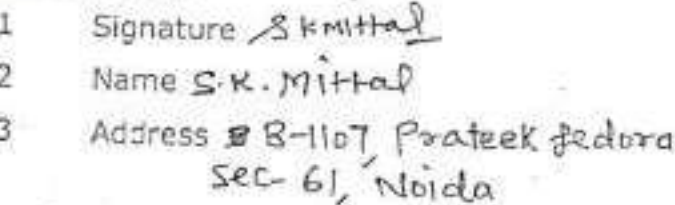 1 Signature SKMittal
2 Name S.K. Mittal
3 Address B-1107, Prateek fedora
Sec- 61, Noida